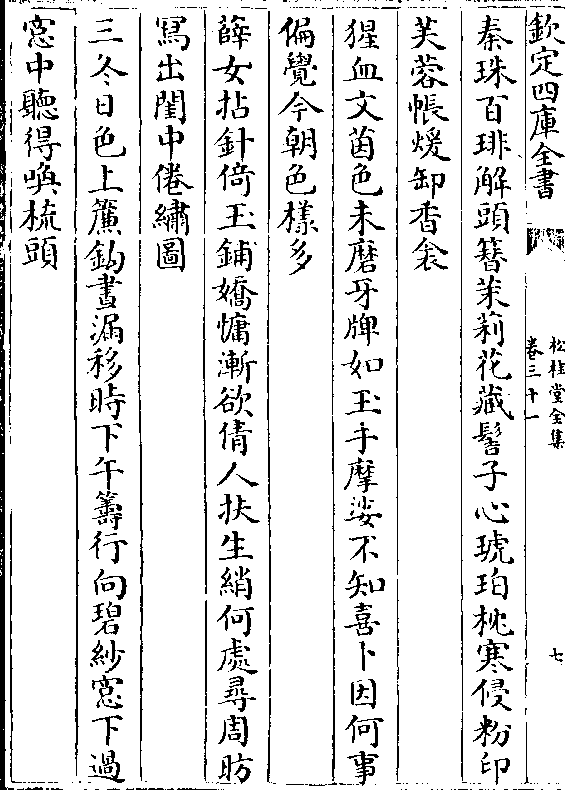 欽定四庫全書
松桂堂全集
卷三十一
七
秦珠百琲解頭簪茉莉花藏髻子心琥珀枕寒侵粉印
芙蓉帳煖卸香衾
猩血文茵色未磨牙牌如玉手摩挲不知喜卜因何事
偏覺今朝色樣多
薛女拈針倚玉鋪嬌慵漸欲倩人扶生綃何處尋周昉
寫出閨中倦繡圖
三冬日色上簾鈎晝漏移時下午籌行向碧紗窓下過
窓中聽得喚梳頭